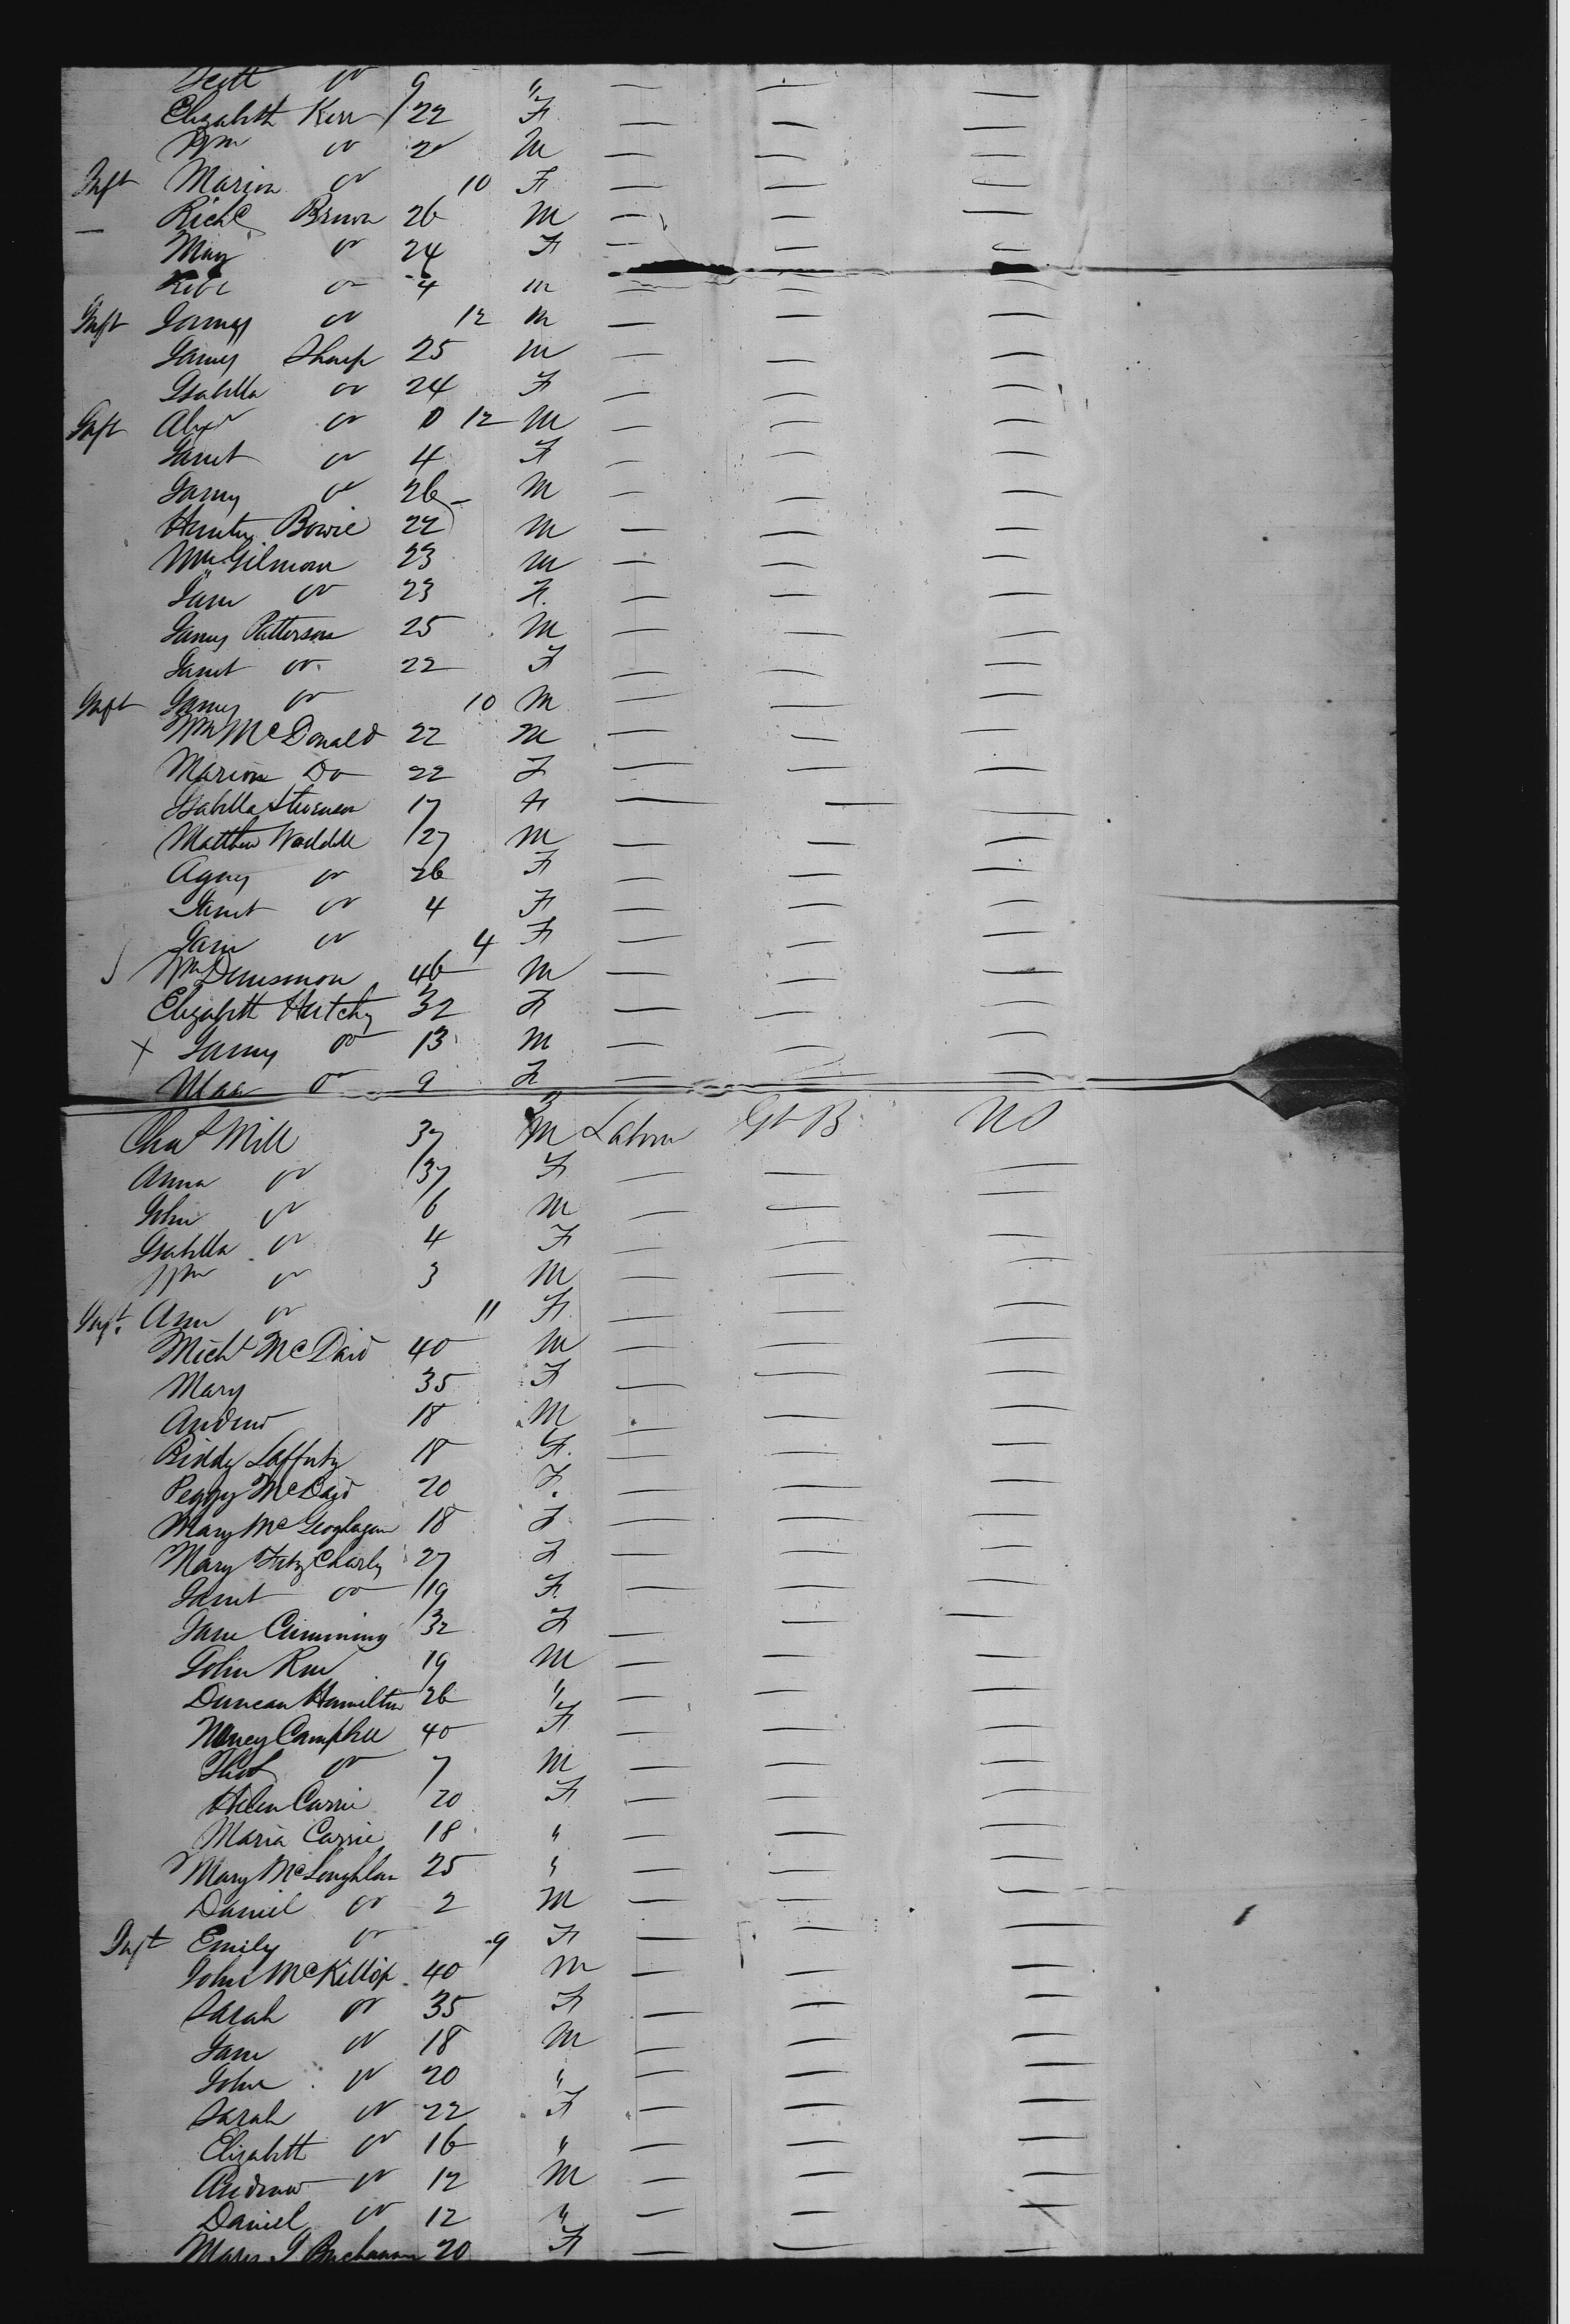 Scott Do 9 "
Elizabeth Kerr 22 F — — —
Wm Do 2 M — — —
Inft Marion Do 10 F — — —
— Richd Brown 26 M — — —
May Do 24 F — — —
Robt Do 4 M — — —
Inft James Do 12 M — — —
James Sharp 25 M — — —
Isabella Do 24 F — — —
Inft Alexr Do 0 12 M — — —
Janet Do 4 F — — —
James Do 26 M — — —
Hunter Bowie 22 M — — —
Wm Gilmour 23 M — — —
Jane Do 23 F. — — —
James Patterson 25 M — — —
Janet Do 22 F — — —
Inft James Do 10 M — — —
Wm McDonald 22 M — — —
Marion Do 22 F — — —
Isabella Stevenson 17 F — — —
Matthew Waddell 27 M — — —
Agnes Do 26 F — — —
Janet Do 4 F — — —
Jane Do 4 F — — —
Wm 46 M — — —
Elizabeth 32 F — — —
X James Do 13 M — — —
Do 9 F — — —
Chas Mill 37 M Labour Gt B US
Anna Do 37 F — — —
John Do 6 M — — —
Isabella Do 4 F — — —
Wm Do 3 M — — —
Inft. Ann Do 11 F — — —
Michl McDaid 40 M — — —
Mary 35 F — — —
Andrew 18 M — — —
Biddy Lafferty 18 F. — — —
Peggy McDaid 20 F. — — —
Mary McGeoghagan 18 F — — —
Mary FitzCharles 27 F — — —
Janet Do 19 F. — — —
Jane Cumming 32 F — — —
John 19 M — — —
Duncan Hamilton 26 " — — —
Nancy Campbell 40 F — — —
Thos Do 7 M — — —
Helen Currie 20 F — — —
Maria Currie 18 " — — —
Mary McLoughlan 25 " — — —
Daniel Do 2 M — — —
Inft Emily Do 9 F — — —
John McKillop 40 M — — —
Sarah Do 35 F — — —
Jane Do 18 M — — —
John Do 20 " — — —
Sarah Do 22 F — — —
Elizabeth Do 16 " — — —
Andrew Do 12 M — — —
Daniel Do 12 " — — —
Mary J Buchanan 20 F — — —